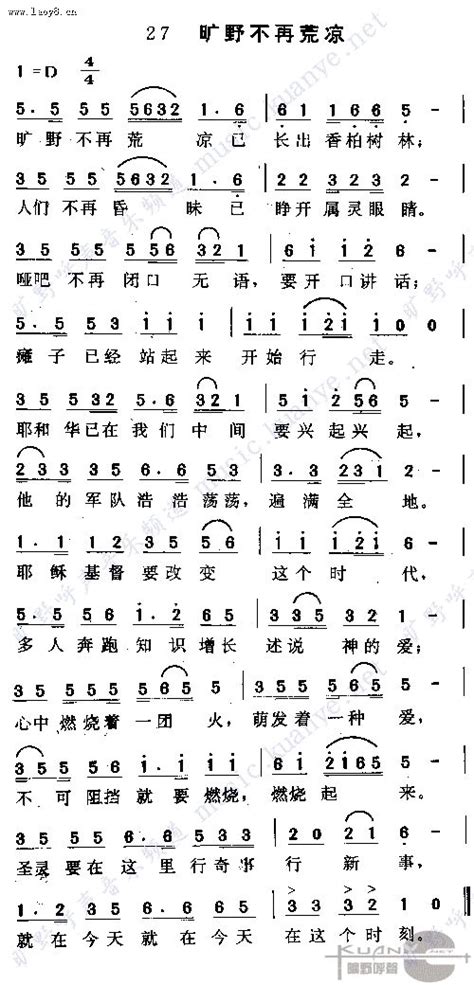 www.1aoy8.cn
27 旷野不再荒凉
1=D 4/4
5. 5 5 5 5632 1. 6 | 61 166 5 - |
旷 野 不再 荒 凉已 长出 香柏树 林；
35 55 5632 1. 6 | 22 323 2 - |
人们 不再 昏 昧已 睁开 属灵眼 睛。
35 55 556 321 | 6i i26 6 - |
哑吧 不再 闭口 无 语，要开 口讲 话；
5. 5 53 i i i | i i i2i i 00
瘫 子 已经 站起来 开始 行 走。
35 5532 5. 6 321 | 5i 2i656 5 - |
耶和 华已在 我们 中 间 要兴起兴 起，
233 335 6. 6 53 | 3. 3 231 2 - |
他 的 军队 浩 浩 荡荡，遍 满 全 地。
1. 1 12 335 56 | i i i2i 6 - |
耶 稣 基督 要改 变 这个 时 代，
5. 5 56 i. 2 65 | 335 532 1 - |
多 人 奔跑 知 识 增长 述说 神的 爱；
35 555 565 5 | 355 565 5 - |
心中 燃烧着 一团 火，萌发着 一种 爱，
355 55 i. i i i | 6i 2i65 5 - |
不可 阻挡 就 要 燃烧，燃烧 起 来。
35 55 6. 6 533 | 20 221 6 - |
圣灵 要在 这 里 行奇事 行 新 事，
1. 2 35 6. 6 65 | 3030 2020 10 0 ‖
就 在 今天 就 在 今天 在这 个时 刻。
旷野呼声音乐频道 music.kuanye.net
KUANYE.NET
旷野呼聲